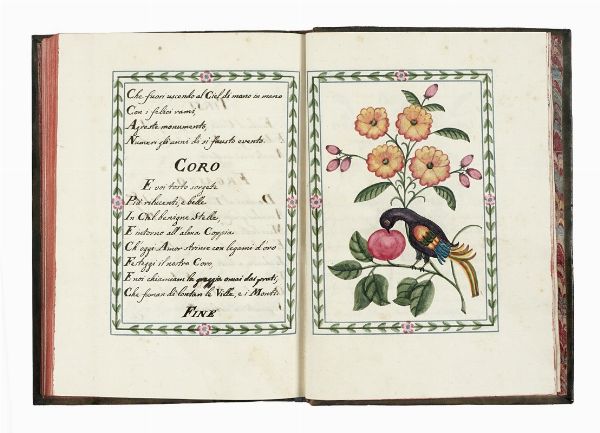 Che fuori uscendo al Ciel di mano in mano
Con i felici rami,
Agreste monumento,
Numeri gli anni di sì fausto evento.
CORO
E voi tosto sorgete
Più rilucenti, e belle
In Ciel benigne Stelle,
E intorno all'alma Coppia
Ch'oggi Amor strinse con legami d'oro
Festeggi il nostro Coro,
E noi chiamiam la greggia omai dai prati,
Che fuman di lontan le Ville, e i Monti.
FINE